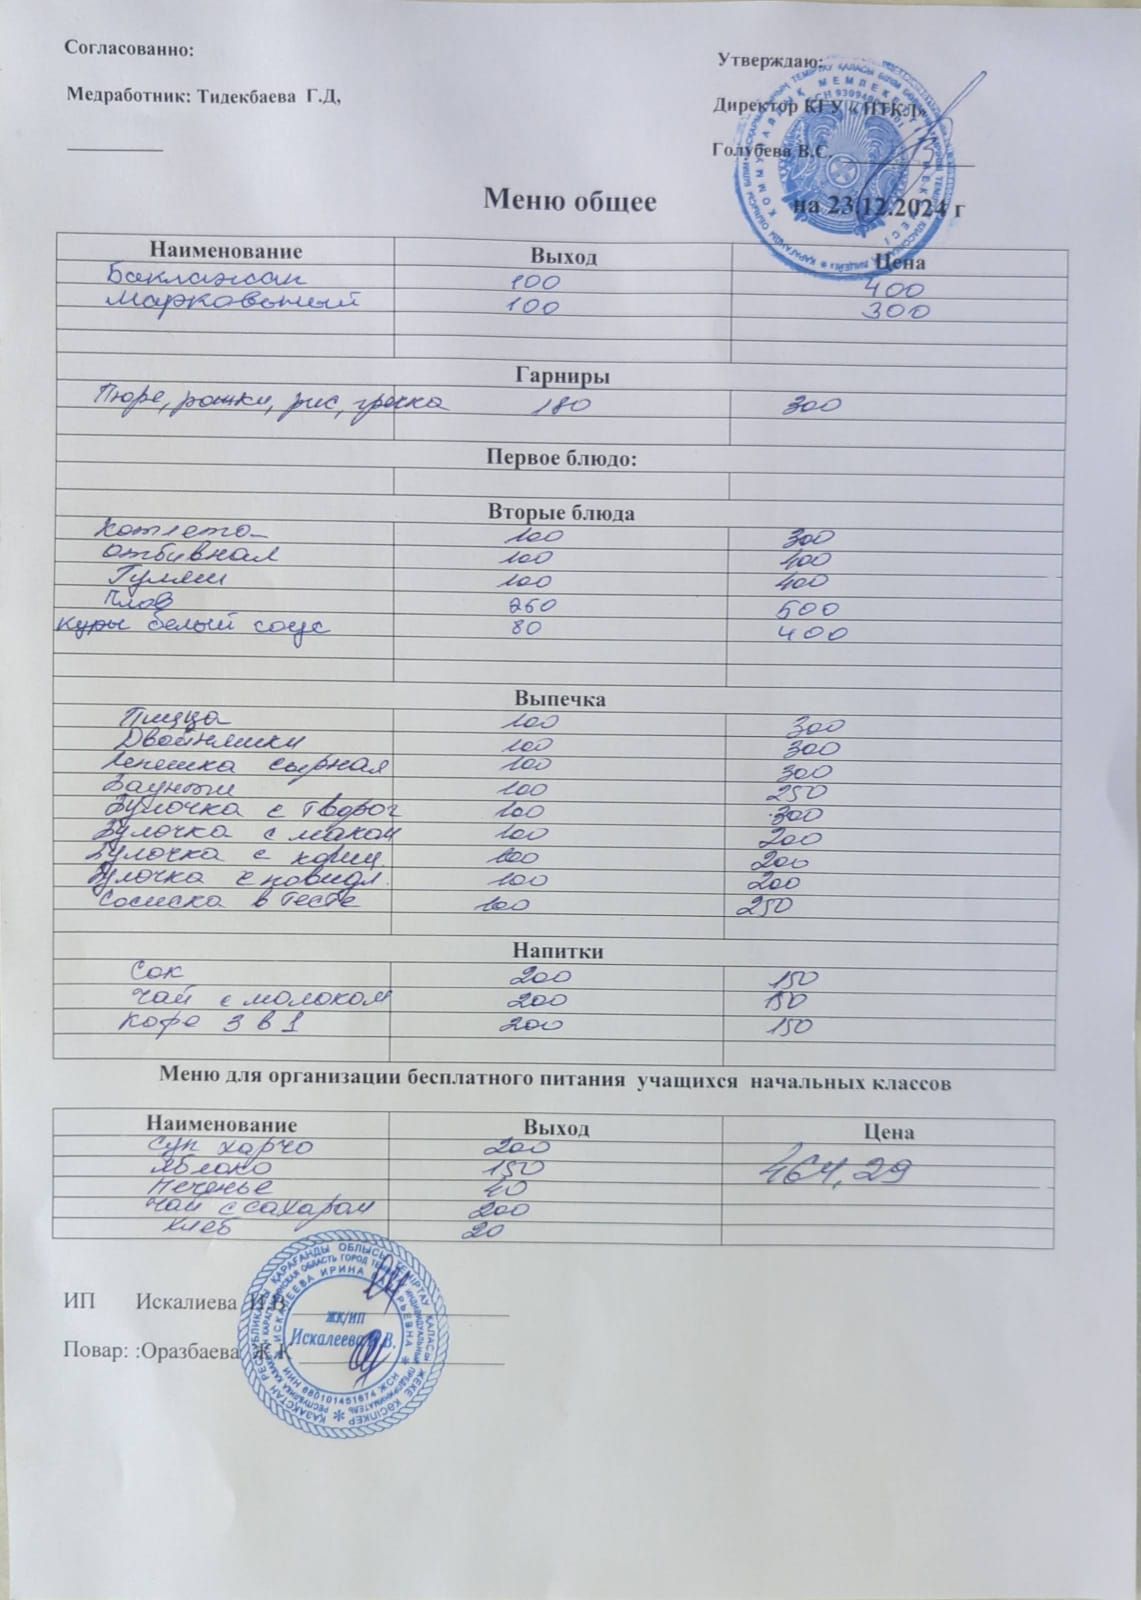 Согласованно:
Утверждаю:
Медработник: Тидекбаева Г.Д,
Директор КГУ « ПТКЛ»
Голубева В.С.
Меню общее
на 23.12.2024 г
Наименование Выход Цена
Баклажан 100 400
Марковьный 100 300
Гарниры
Пюре, рошки, рис, гречка 180 300
Первое блюдо:
Вторые блюда
Котлета 100 300
отбивная 100 400
Гуляш 100 400
Плов 250 500
куры белый соус 80 400
Выпечка
Пицца 100 300
Двойняшки 100 300
Лепешка сырная 100 300
100 250
Булочка с творог 100 300
Булочка с маком 100 200
Булочка с кориц. 100 200
Булочка с повидл. 100 200
Сосиска в тесте 100 250
Напитки
Сок 200 150
Чай с молоком 200 150
Кофе 3 в 1 200 150
Меню для организации бесплатного питания учащихся начальных классов
Наименование Выход Цена
Суп харчо 200
Яблоко 150 464,29
Печенье 40
Чай с сахаром 200
Хлеб 20
ИП Искалиева И.В.
ЖК/ИП
Искалеева И.В.
Повар: :Оразбаева Ж.К